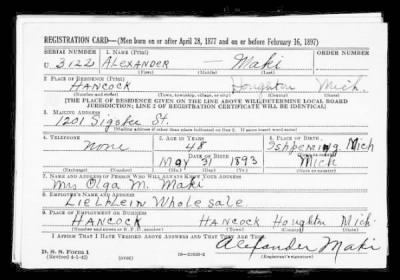 REGISTRATION CARD—(Men born on or after April 28, 1877 and on or before February 16, 1897)
SERIAL NUMBER 1. NAME (Print) ORDER NUMBER
U 3122 ALEXANDER — Maki
(First) (Middle) (Last)
2. PLACE OF RESIDENCE (Print)
HANCOCK Houghton Mich.
(Number and street) (Town, township, village, or city) (County) (State)
[THE PLACE OF RESIDENCE GIVEN ON THE LINE ABOVE WILL DETERMINE LOCAL BOARD
JURISDICTION; LINE 2 OF REGISTRATION CERTIFICATE WILL BE IDENTICAL]
3. MAILING ADDRESS
1201 St.
[Mailing address if other than place indicated on line 2. If same insert word same]
4. TELEPHONE 5. AGE IN YEARS 6. PLACE OF BIRTH
None 48 Ishpeming Mich
DATE OF BIRTH
MAY 31 1893 Mich
(Mo.) (Day) (Yr.) (State or country)
7. NAME AND ADDRESS OF PERSON WHO WILL ALWAYS KNOW YOUR ADDRESS
Mrs Olga M. Maki
8. EMPLOYER'S NAME AND ADDRESS
Wholesale
9. PLACE OF EMPLOYMENT OR BUSINESS
HANCOCK HANCOCK Houghton Mich.
(Number and street or R. F. D. number) (Town) (County) (State)
I AFFIRM THAT I HAVE VERIFIED ABOVE ANSWERS AND THAT THEY ARE TRUE.
D. S. S. Form 1
(Revised 4-1-42) Alexander Maki